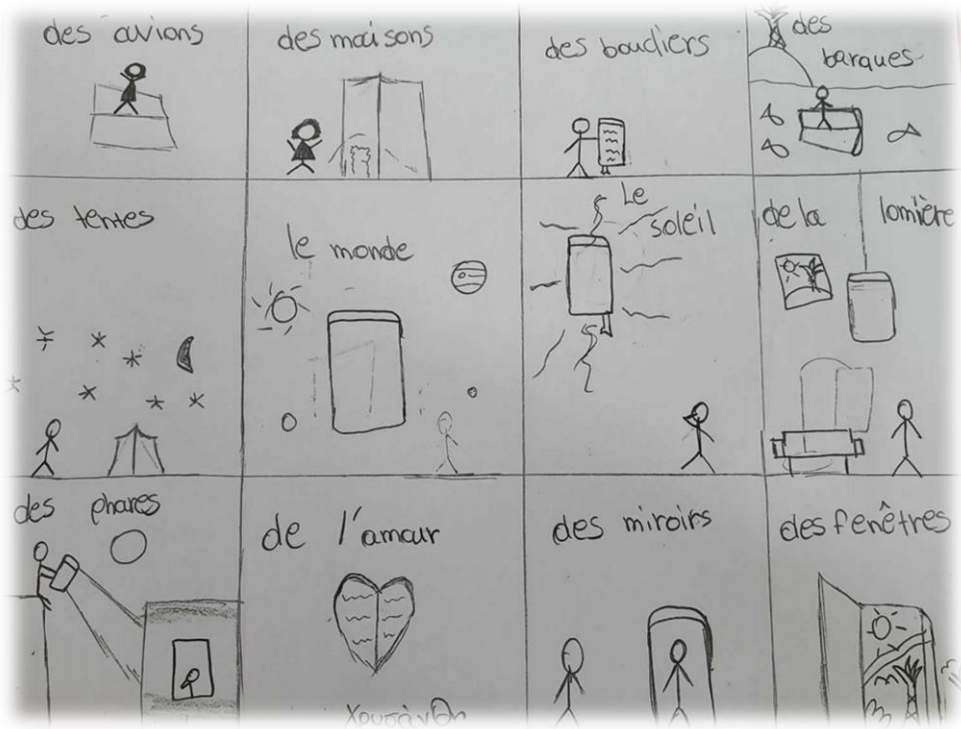 des avions
des maisons
des boucliers
des
barques
des tentes
le monde
Le
soleil
de la lomière
des phares
de l'amour
Χρυσάνθη
des miroirs
des fenêtres